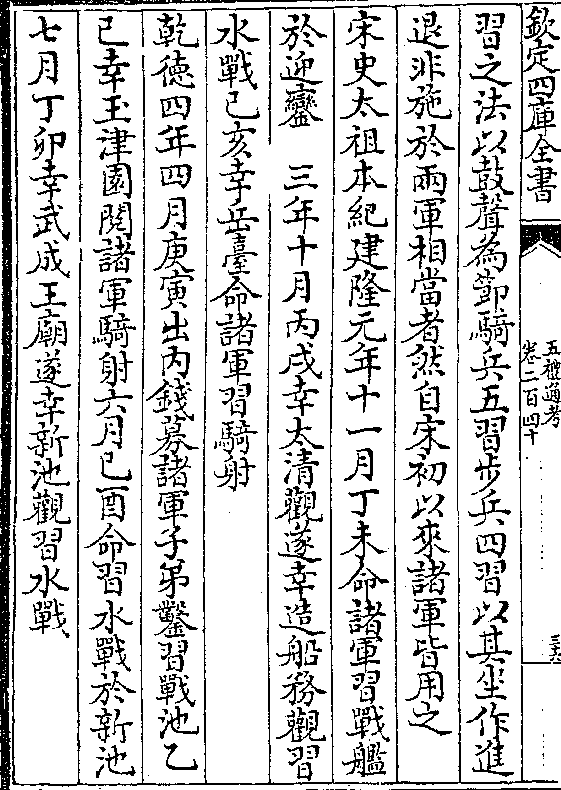 欽定四庫全書
五禮通考
卷二百四十
三六
習之法以鼓聲為節騎兵五習步兵四習以其坐作進
退非施於兩軍相當者然自宋初以來諸軍皆用之
宋史太祖本紀建隆元年十一月丁未命諸軍習戰艦
於迎鑾　三年十月丙戌幸太清觀遂幸造船務觀習
水戰己亥幸岳臺命諸軍習騎射
乾徳四年四月庚寅出内錢募諸軍子弟鑿習戰池乙
已幸玉津園閱諸軍騎射六月已酉命習水戰於新池
七月丁卯幸武成王廟遂幸新池觀習水戰